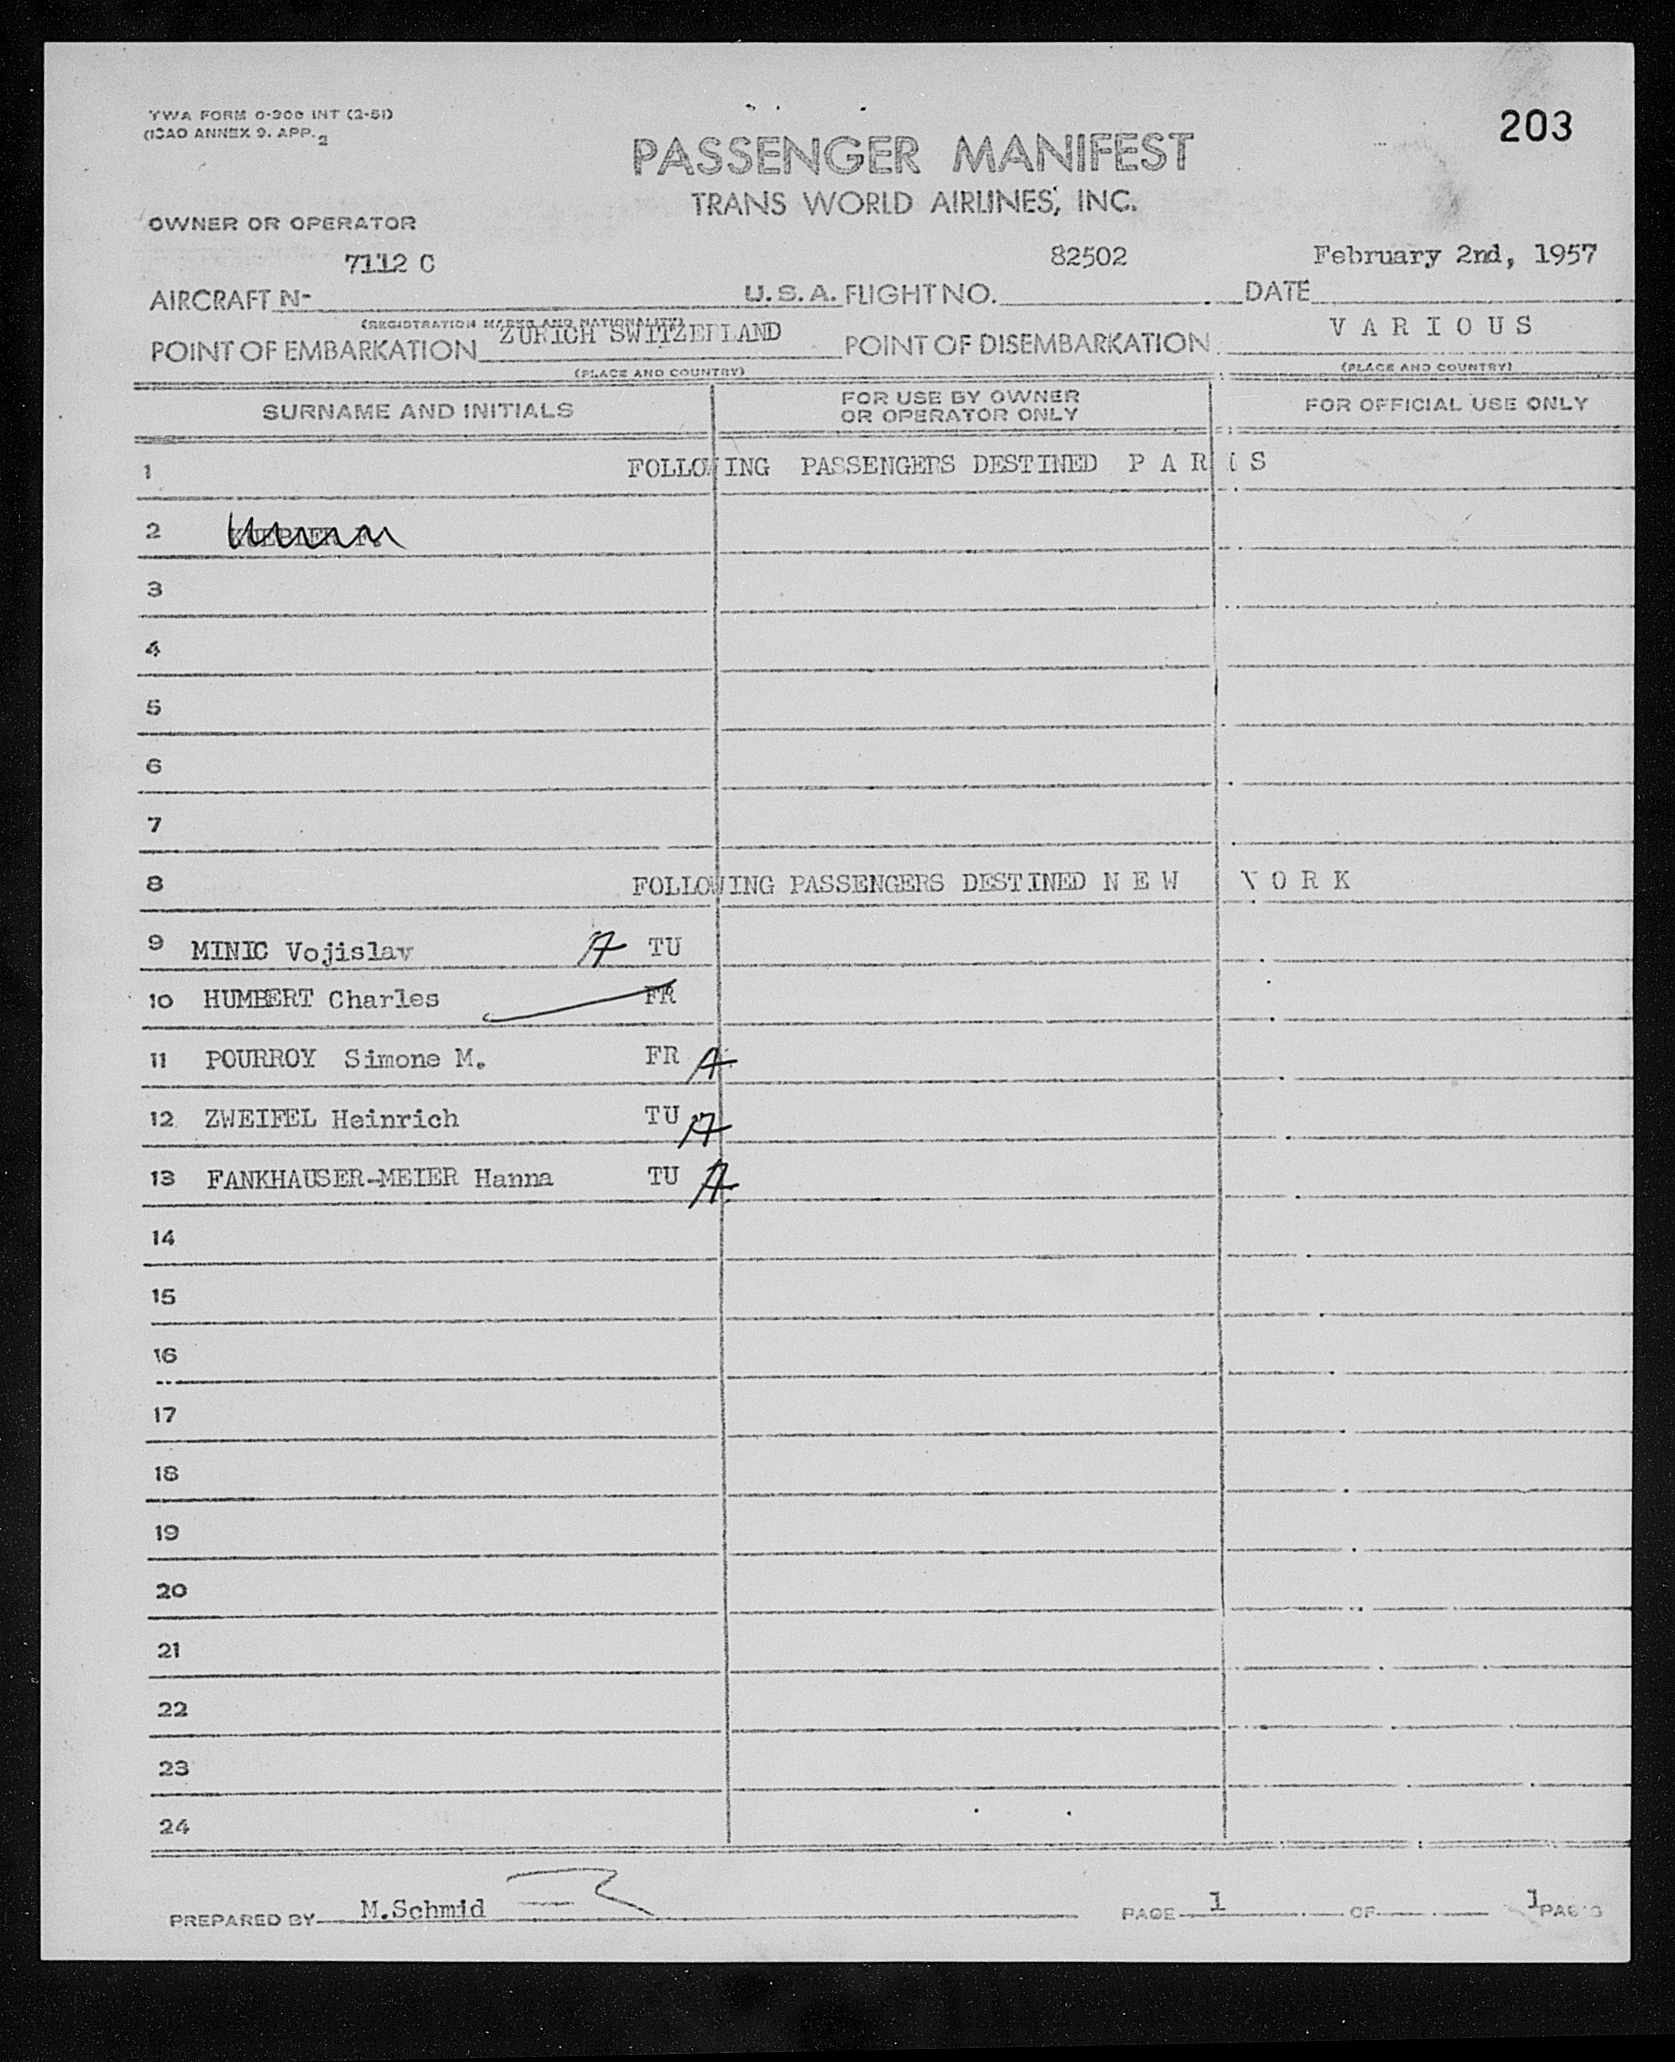 TWA FORM 0-300 INT (2-51)
(ICAO ANNEX 9. APP. 2
203
PASSENGER MANIFEST
TRANS WORLD AIRLINES, INC.
OWNER OR OPERATOR
7112 C 82502 February 2nd, 1957
AIRCRAFT N- U.S.A. FLIGHT NO. DATE
(REGISTRATION MARKS AND NATIONALITY)
ZURICH SWITZERLAND V A R I O U S
POINT OF EMBARKATION POINT OF DISEMBARKATION
(PLACE AND COUNTRY) (PLACE AND COUNTRY)
SURNAME AND INITIALS FOR USE BY OWNER OR OPERATOR ONLY FOR OFFICIAL USE ONLY
1 FOLLOWING PASSENGERS DESTINED P A R I S
2
3
4
5
6
7
8 FOLLOWING PASSENGERS DESTINED N E W Y O R K
9 MINIC Vojislav A TU
10 HUMBERT Charles FR
11 POURROY Simone M. FR A
12 ZWEIFEL Heinrich TU A
13 FANKHAUSER-MEIER Hanna TU A
14
15
16
17
18
19
20
21
22
23
24
PREPARED BY M.Schmid PAGE 1 OF 1 PAGES